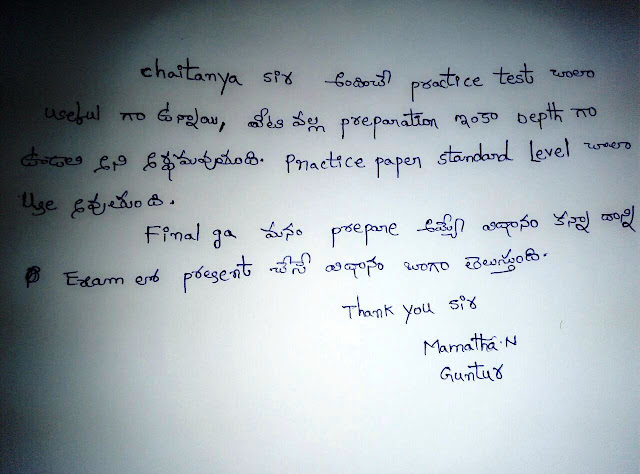 chaitanya sir అందించే practice test చాలా
useful గా ఉన్నాయి, వీటి వల్ల preparation ఇంకా Depth గా
ఉండాలి అని అర్థమవుతుంది. Practice paper standard Level చాలా
Use అవుతుంది.
Final ga మనం prepare అయ్యే విధానం కన్నా దాన్ని
Exam లో present చేసే విధానం బాగా తెలుస్తుంది.
Thank you sir
Mamatha.N
Guntur